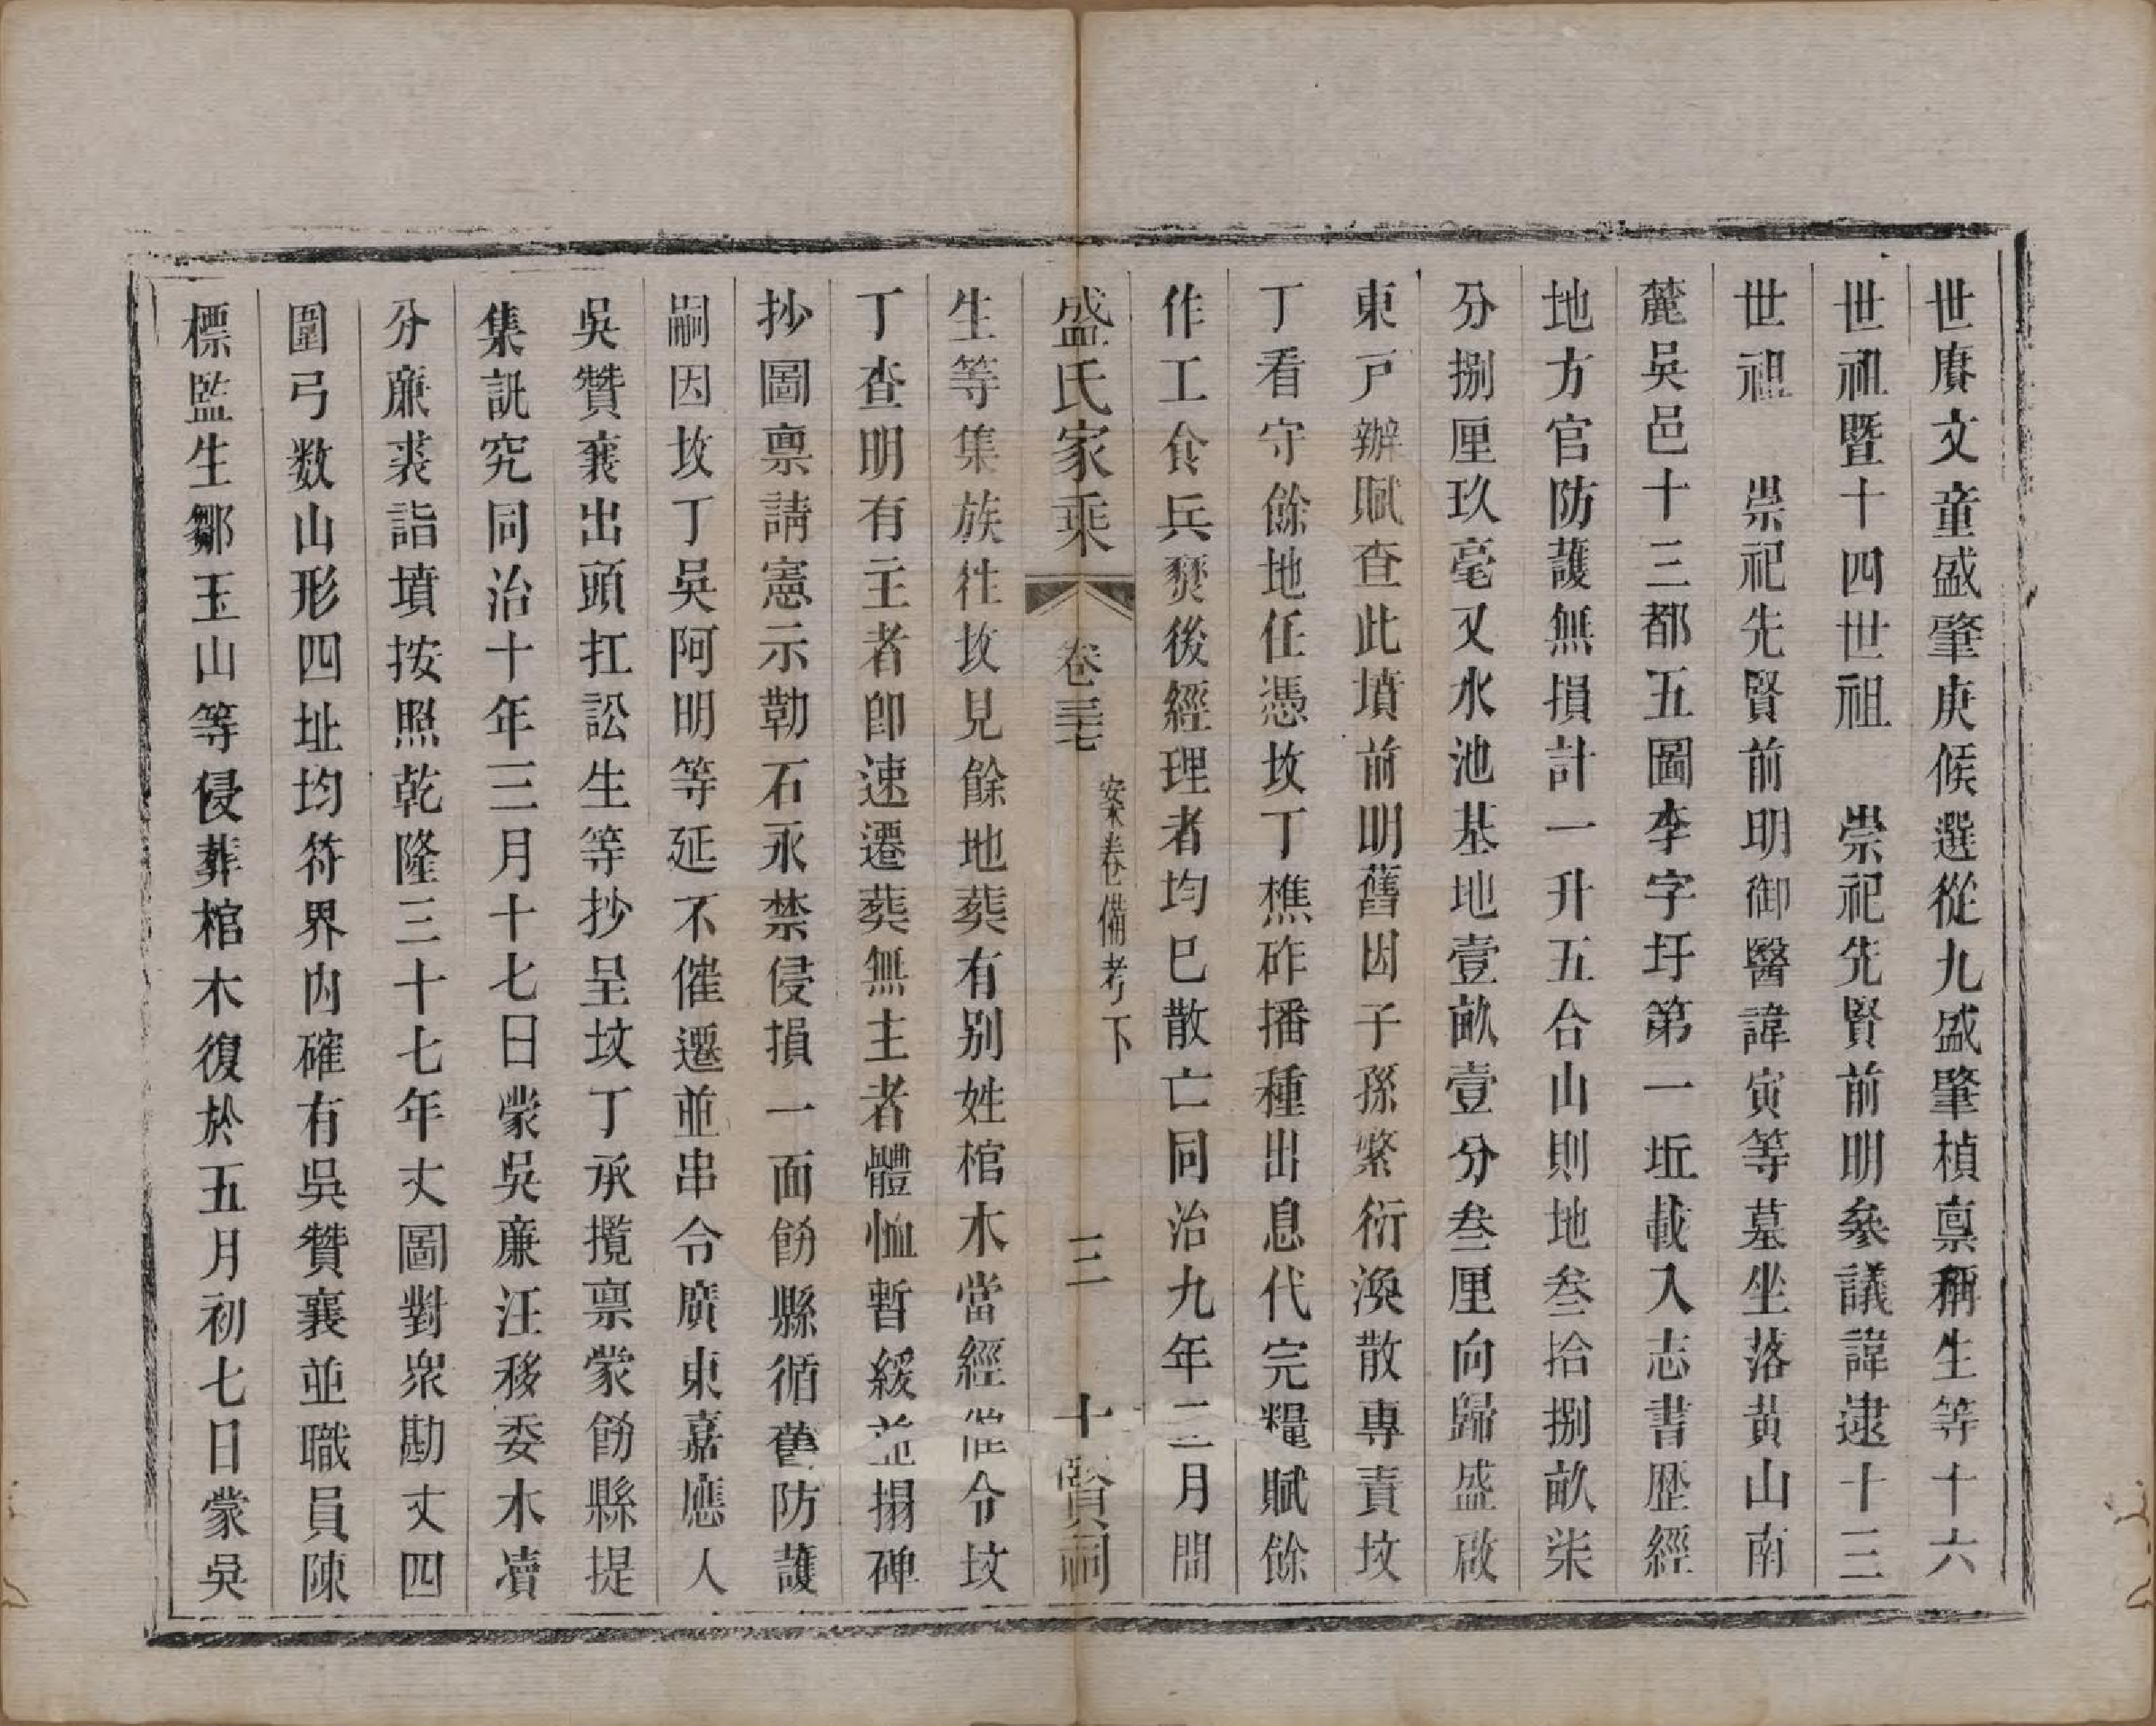 世賡文童盛肇庚候選從九盛肇楨禀稱生等十六
世祖暨十四世祖 崇祀先賢前明參議諱逮十三
世祖 崇祀先賢前明御醫諱寅等墓坐落黄山南
麓吳邑十三都五圖李字圩第一坵載入志書歷經
地方官防護無損計一升五合山則地叁拾捌畝柒
分捌厘玖毫又水池基地壹畝壹分叁厘向歸盛啟
東戸辦賦查此墳前明舊因子孫繁衍渙散專責坟
丁看守餘地任憑坟丁樵砟播種出息代完糧賦餘
作工食兵燹後經理者均已散亡同治九年二月間
盛氏家乘 卷三七 案卷備考下 三 十賢祠
生等集族往坟見餘地葬有别姓棺木當經催令坟
丁查明有主者卽速遷葬無主者體恤暫緩並搨碑
抄圖禀請憲示勒石永禁侵損一面飭縣循舊防護
嗣因坟丁吳阿明等延不催遷並串令廣東嘉應人
吳贊襄出頭扛訟生等抄呈坟丁承攬禀蒙飭縣提
集訊究同治十年三月十七日蒙吳廉汪移委木凟
分廉裘詣墳按照乾隆三十七年丈圖對衆勘丈四
圍弓数山形四址均符界内確有吳贊襄並職員陳
標監生鄒玉山等侵葬棺木復於五月初七日蒙吳